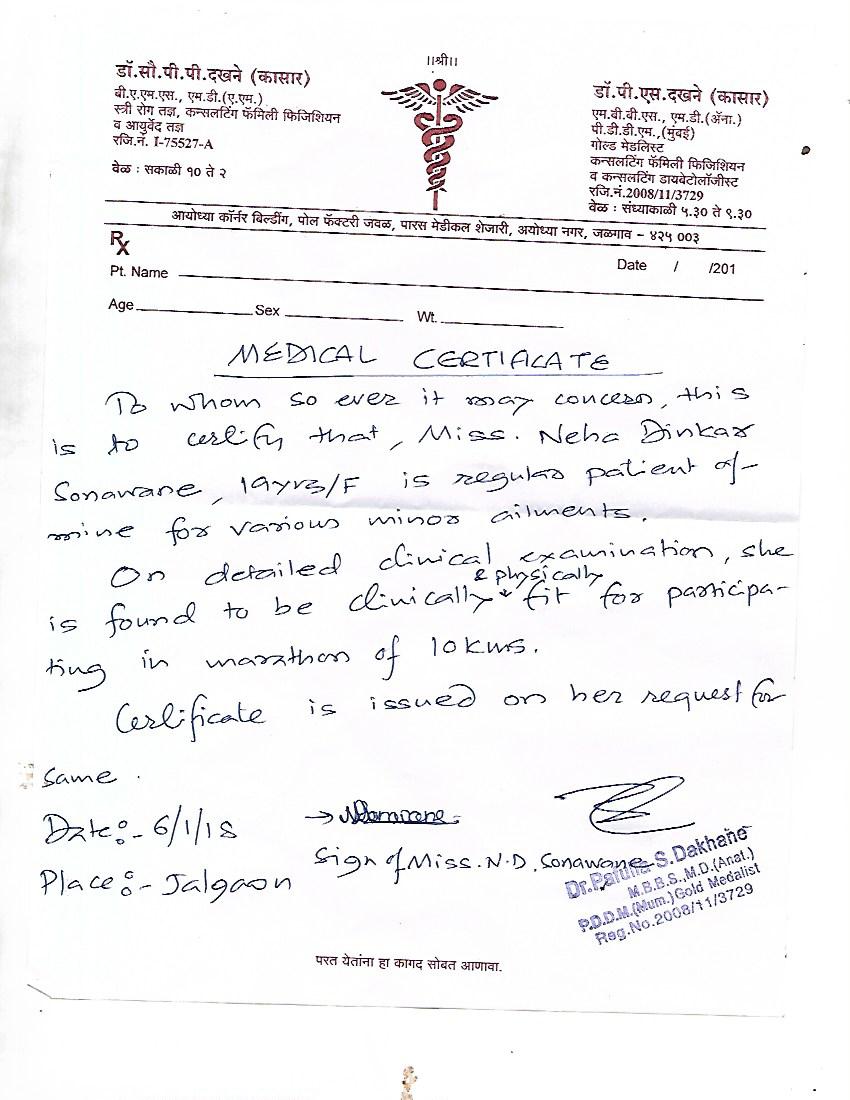 ||श्री||
डॉ.सौ.पी.पी.दखने (कासार)
बी.ए.एम.एस., एम.डी.(ए.एम.)
स्त्री रोग तज्ञ, कन्सलटिंग फॅमिली फिजिशियन
व आयुर्वेद तज्ञ
रजि.नं. I-75527-A
वेळ : सकाळी १० ते २
डॉ.पी.एस.दखने (कासार)
एम.बी.बी.एस., एम.डी.(ॲना.)
पी.डी.डी.एम.,(मुंबई)
गोल्ड मेडलिस्ट
कन्सलटिंग फॅमिली फिजिशियन
व कन्सलटिंग डायबेटोलॉजीस्ट
रजि.नं.2008/11/3729
वेळ : संध्याकाळी ५.३० ते ९.३०
आयोध्या कॉर्नर बिल्डींग, पोल फॅक्टरी जवळ, पारस मेडीकल शेजारी, अयोध्या नगर, जळगाव - ४२५ 003
Rx
Date / /201
Pt. Name
Age Sex Wt.
MEDICAL CERTIFICATE
To whom so ever it may concern, this
is to certify that, Miss. Neha Dinkar
Sonawane, 19yrs/F is regular patient of
mine for various minor ailments.
On detailed clinical examination, she
& physically
is found to be clinically fit for participa-
ting in marathon of 10 kms.
Certificate is issued on her request for
same.
Date:- 6/1/18
Place:- Jalgaon
Sign of Miss. N.D. Sonawane
S. Dakhane
M.B.B.S., M.D.(Anat.)
P.D.D.M.(Mum.) Gold Medalist
Reg.No.2008/11/3729
परत येतांना हा कागद सोबत आणावा.